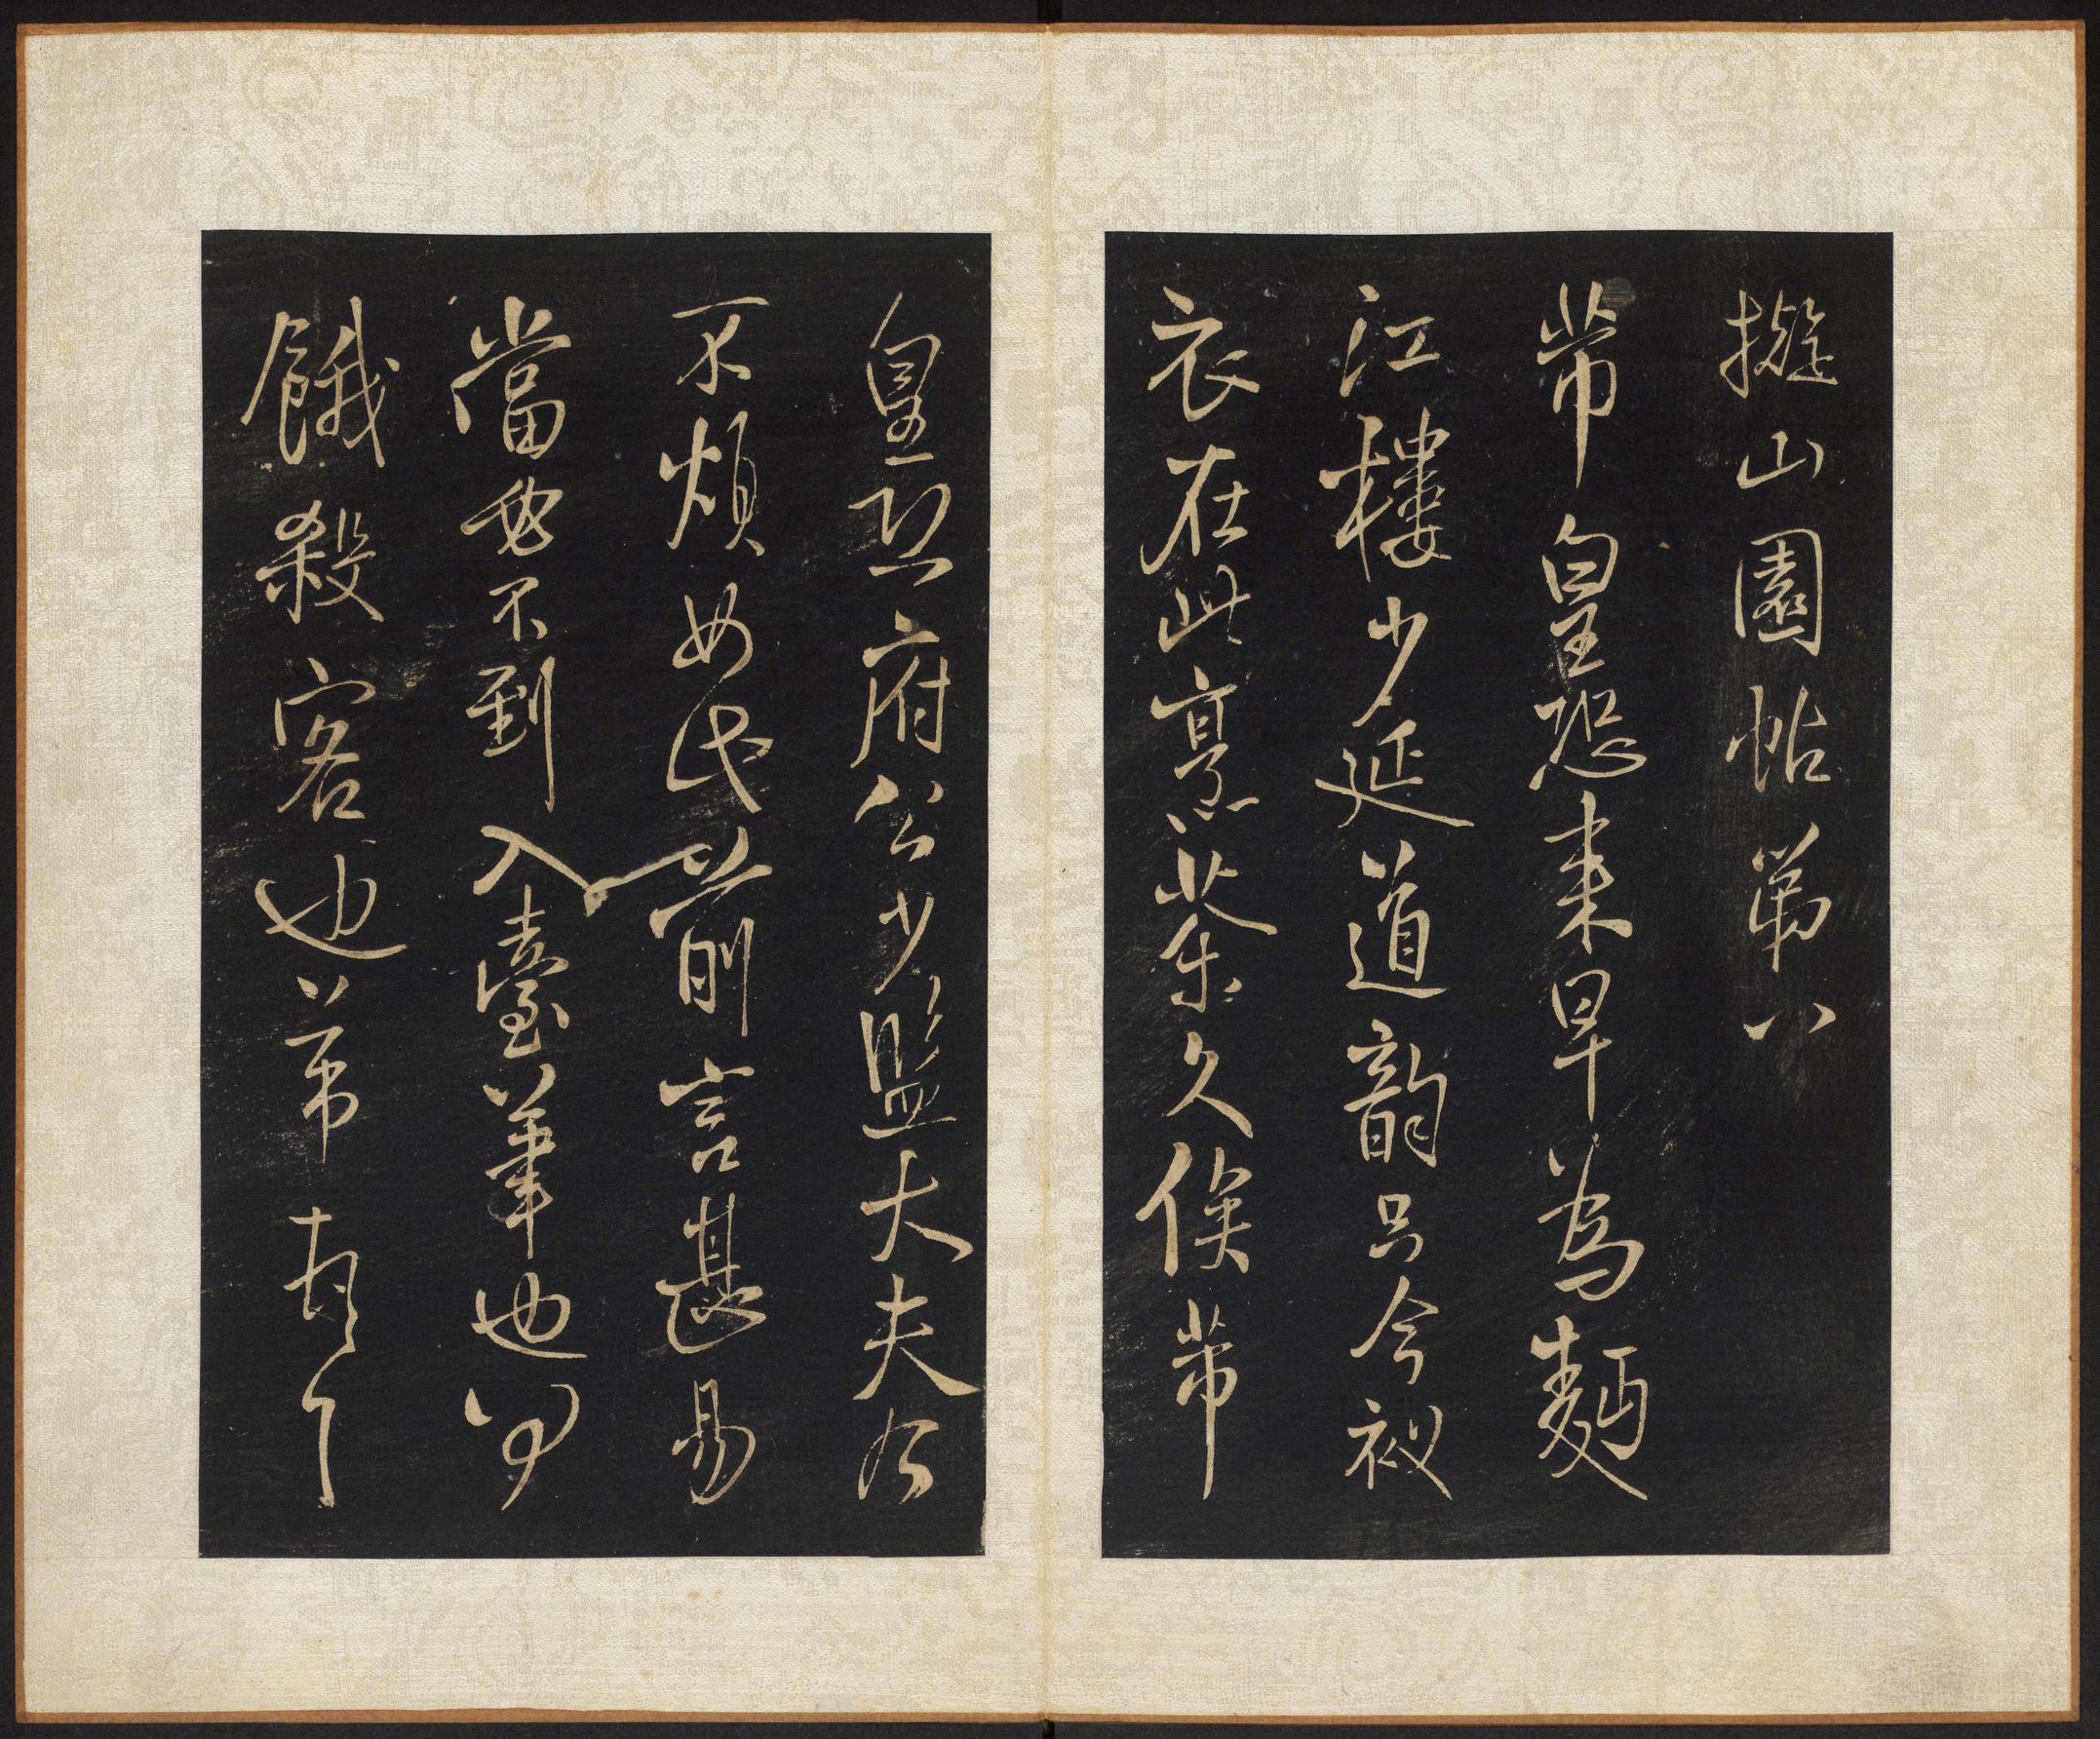 擬山園帖第八
芾皇恐来早為麵
江樓少延道韵只今衩
衣在此烹茶久俟芾
皇恐府公少監大夫公
不煩氏前言甚易
當不到入臺筆也
餓殺客也芾頓首